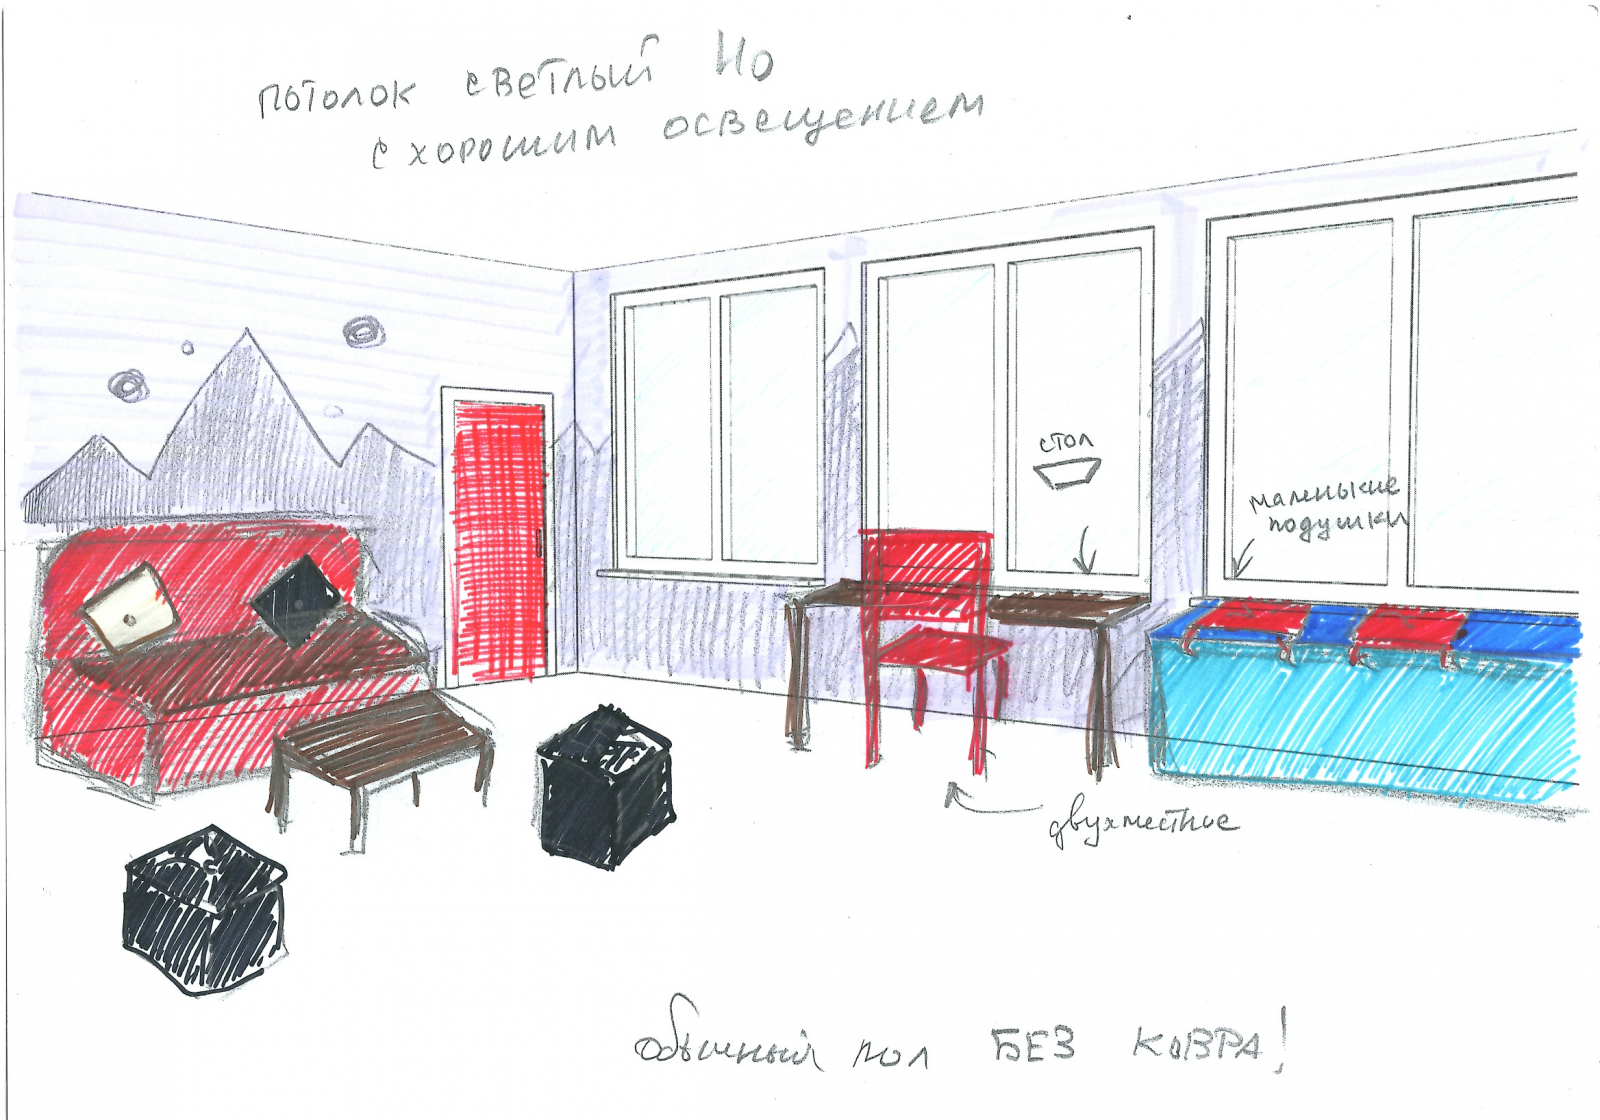 потолок светлый но
с хорошим освещением
стол
маленькие
подушки
двухместное
обычный пол БЕЗ КОВРА!